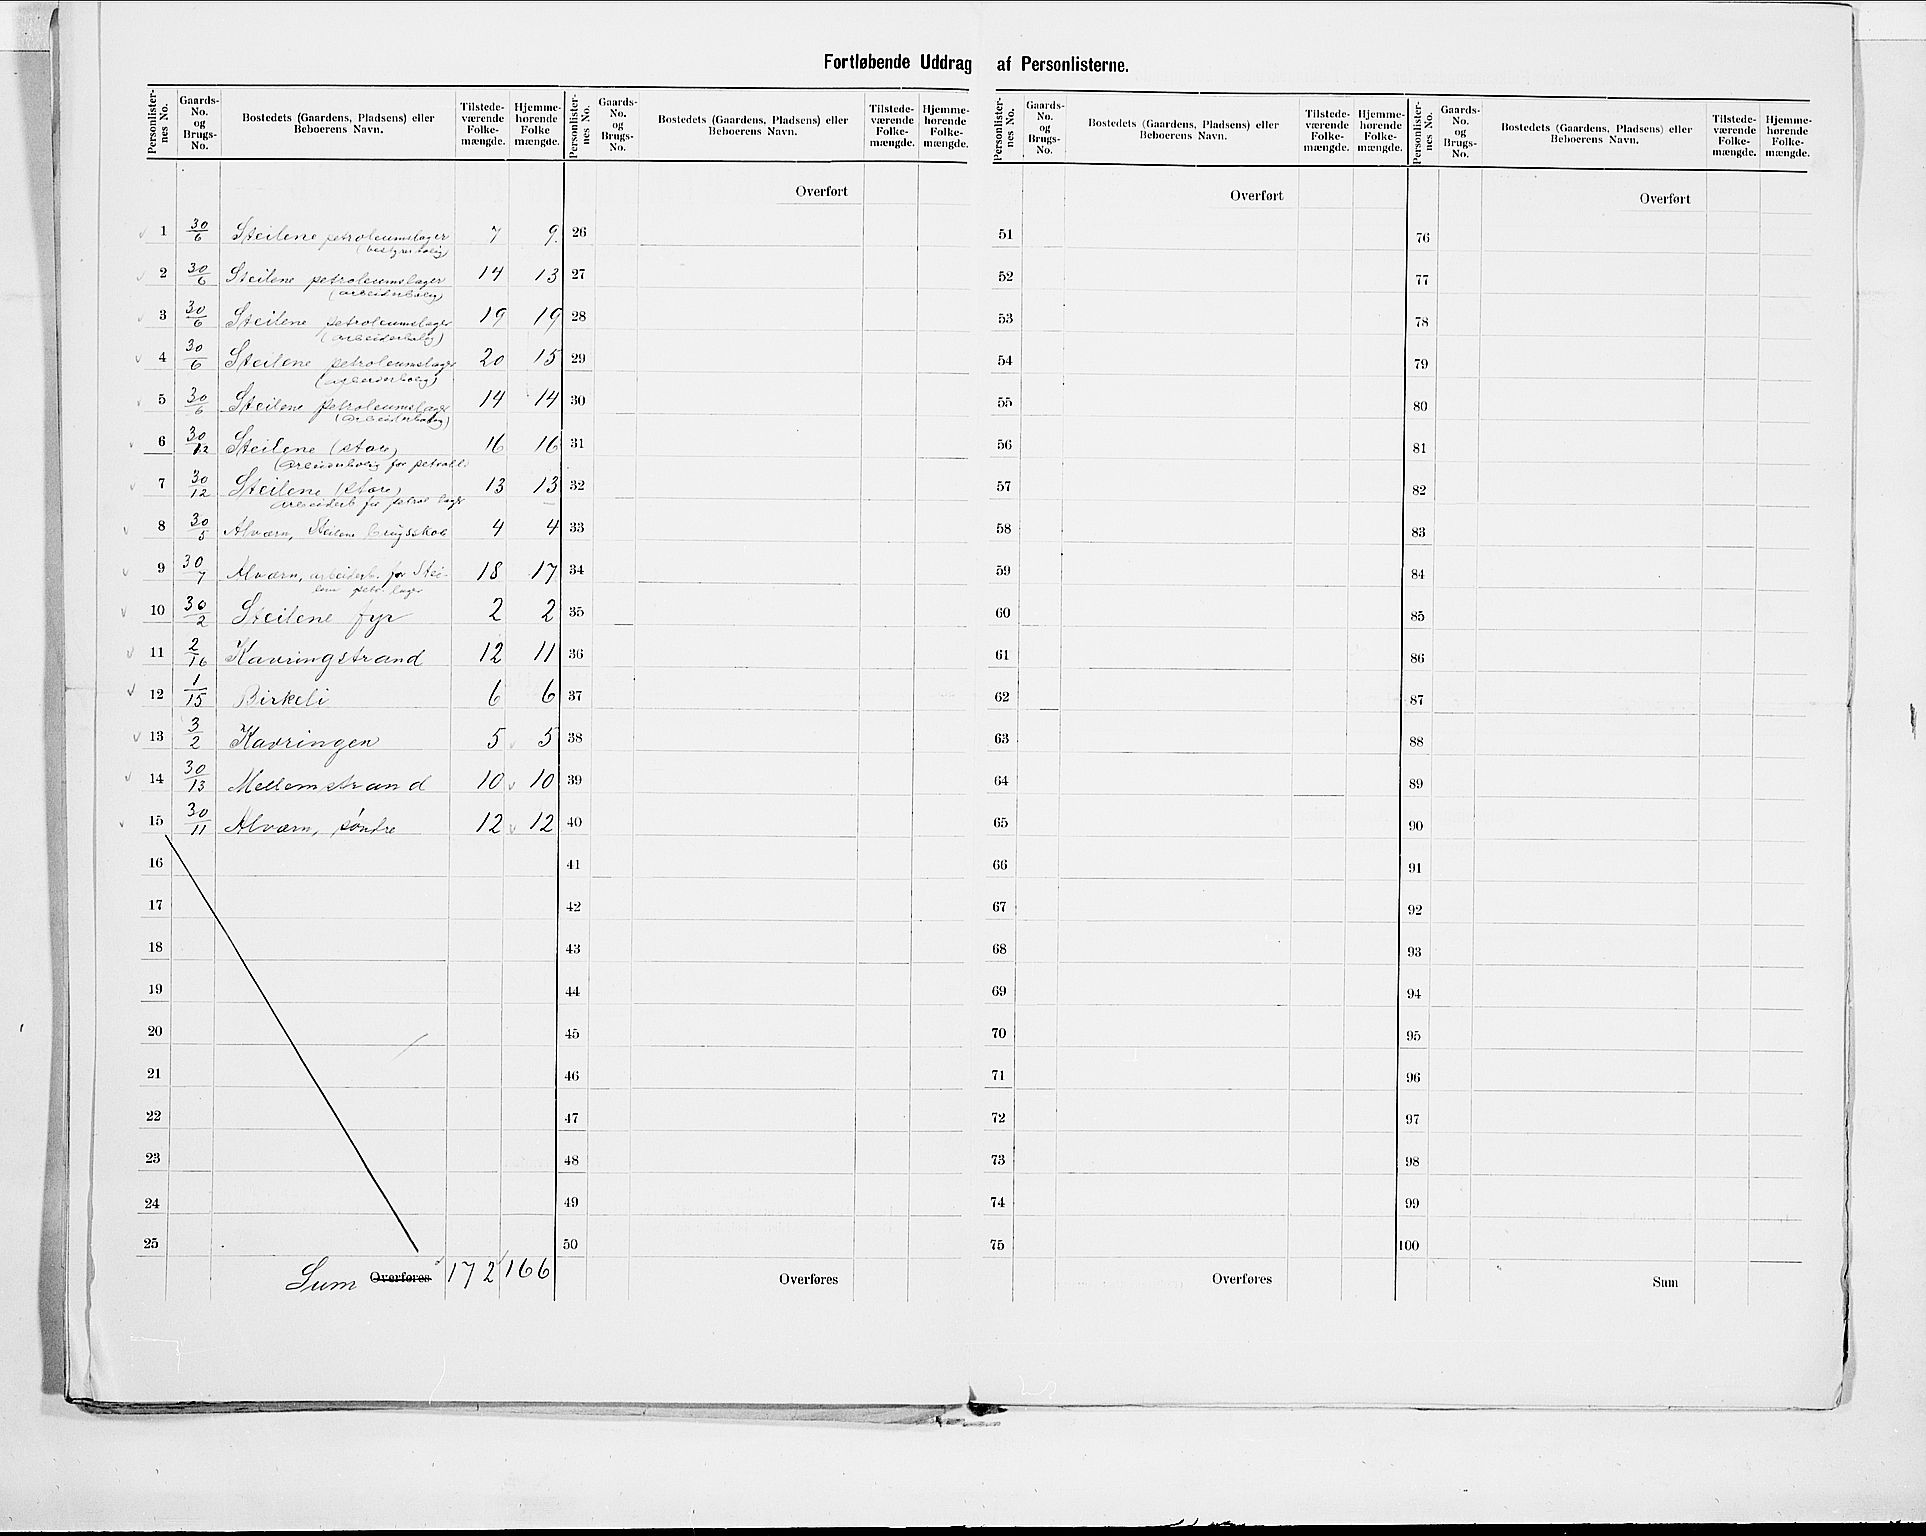 Fortløbende Uddrag af Personlisterne.
Personlisternes No. Gaards-No. og Brugs-No. Bostedets (Gaardens, Pladsens) eller Beboerens Navn. Tilstedeværende Folkemængde. Hjemmehørende Folkemængde.
Personlisternes No. Gaards-No. og Brugs-No. Bostedets (Gaardens, Pladsens) eller Beboerens Navn. Tilstedeværende Folkemængde. Hjemmehørende Folkemængde.
Personlisternes No. Gaards-No. og Brugs-No. Bostedets (Gaardens, Pladsens) eller Beboerens Navn. Tilstedeværende Folkemængde. Hjemmehørende Folkemængde.
Personlisternes No. Gaards-No. og Brugs-No. Bostedets (Gaardens, Pladsens) eller Beboerens Navn. Tilstedeværende Folkemængde. Hjemmehørende Folkemængde.
Overført Overført Overført
1 30/6 Steilene petroleumslager 7 9. 26 51 76
(bestyrerbolig)
2 30/6 Steilene petroleumslager 14 13 27 52 77
(arbeiderbolig)
3 30/6 Steilene petroleumslager 19 19 28 53 78
(arbeiderbolig)
4 30/6 Steilene petroleumslager 20 15 29 54 79
(arbeiderbolig)
5 30/6 Steilene petroleumslager 14 14 30 55 80
(arbeiderbolig)
6 30/12 Steilene (store) 16 16 31 56 81
(arbeiderbolig for petrol.l.
7 30/12 Steilene (store) 13 13 32 57 82
arbeiderb for petrol lager
8 30/5 Alværn, Steilene brugsskole 4 4 33 58 83
9 30/7 Alværn, arbeiderb. for Stei- 18 17 34 59 84
lene petr. lager
10 30/2 Steilene fyr 2 2 35 60 85
11 2/16 Kavringstrand 12 11 36 61 86
12 1/15 Birkeli 6 6 37 62 87
13 3/2 Kavringen 5 5 38 63 88
14 30/13 Mellemstrand 10 10 39 64 89
15 30/11 Alværn, søndre 12 12 40 65 90
16 41 66 91
17 42 67 92
18 43 68 93
19 44 69 94
20 45 70 95
21 46 71 96
22 47 72 97
23 48 73 98
24 49 74 99
25 50 75 100
Sum Overføres 172 166 Overføres Overføres Sum